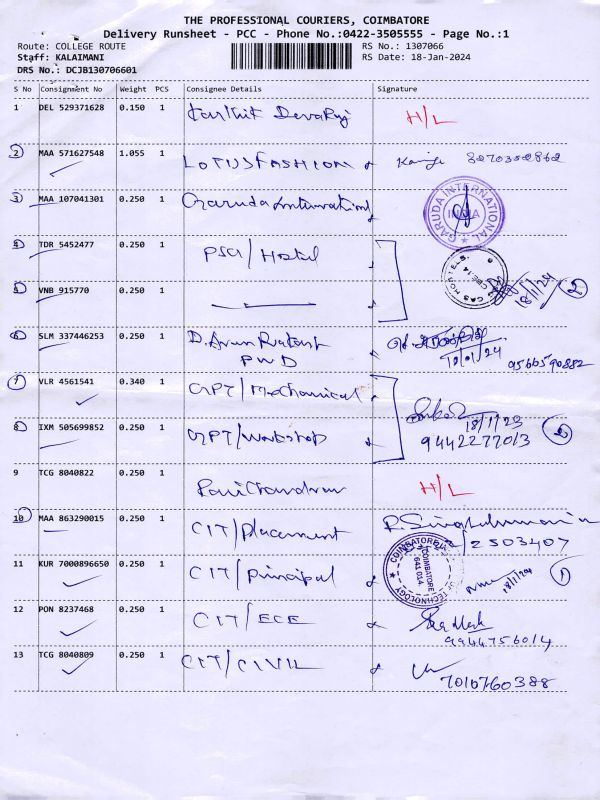 THE PROFESSIONAL COURIERS, COIMBATORE
Delivery Runsheet - PCC - Phone No.:0422-3505555 - Page No.:1
Route: COLLEGE ROUTE RS No.: 1307066
Staff: KALAIMANI RS Date: 18-Jan-2024
DRS No.: DCJB130706601
S No Consignment No Weight PCS Consignee Details Signature
1 DEL 529371628 0.150 1 Karthik Devaraj H/L
2 MAA 571627548 1.055 1 LOTUS FASHION
3 MAA 107041301 0.250 1 Garuda International
GARUDA INTERNATIONAL INDIA
4 TDR 5452477 0.250 1 PSG/Hostel
5 VNB 915770 0.250 1 18/1/24 2
6 SLM 337446253 0.250 1 D. Arun Prakash
PWD 18/01/24 9566590882
7 VLR 4561541 0.340 1 GPT/Mechanical
18/1/23
8 IXM 505699852 0.250 1 GPT/Workshop 9442277013 2
9 TCG 8040822 0.250 1 Ravichandran H/L
10 MAA 863290015 0.250 1 CIT/Placement
2503407
11 KUR 7000896650 0.250 1 CIT/Principal 18/1/24 1
COIMBATORE 641 014
12 PON 8237468 0.250 1 CIT/ECE
9944756014
13 TCG 8040809 0.250 1 CIT/CIVIL
7010760388